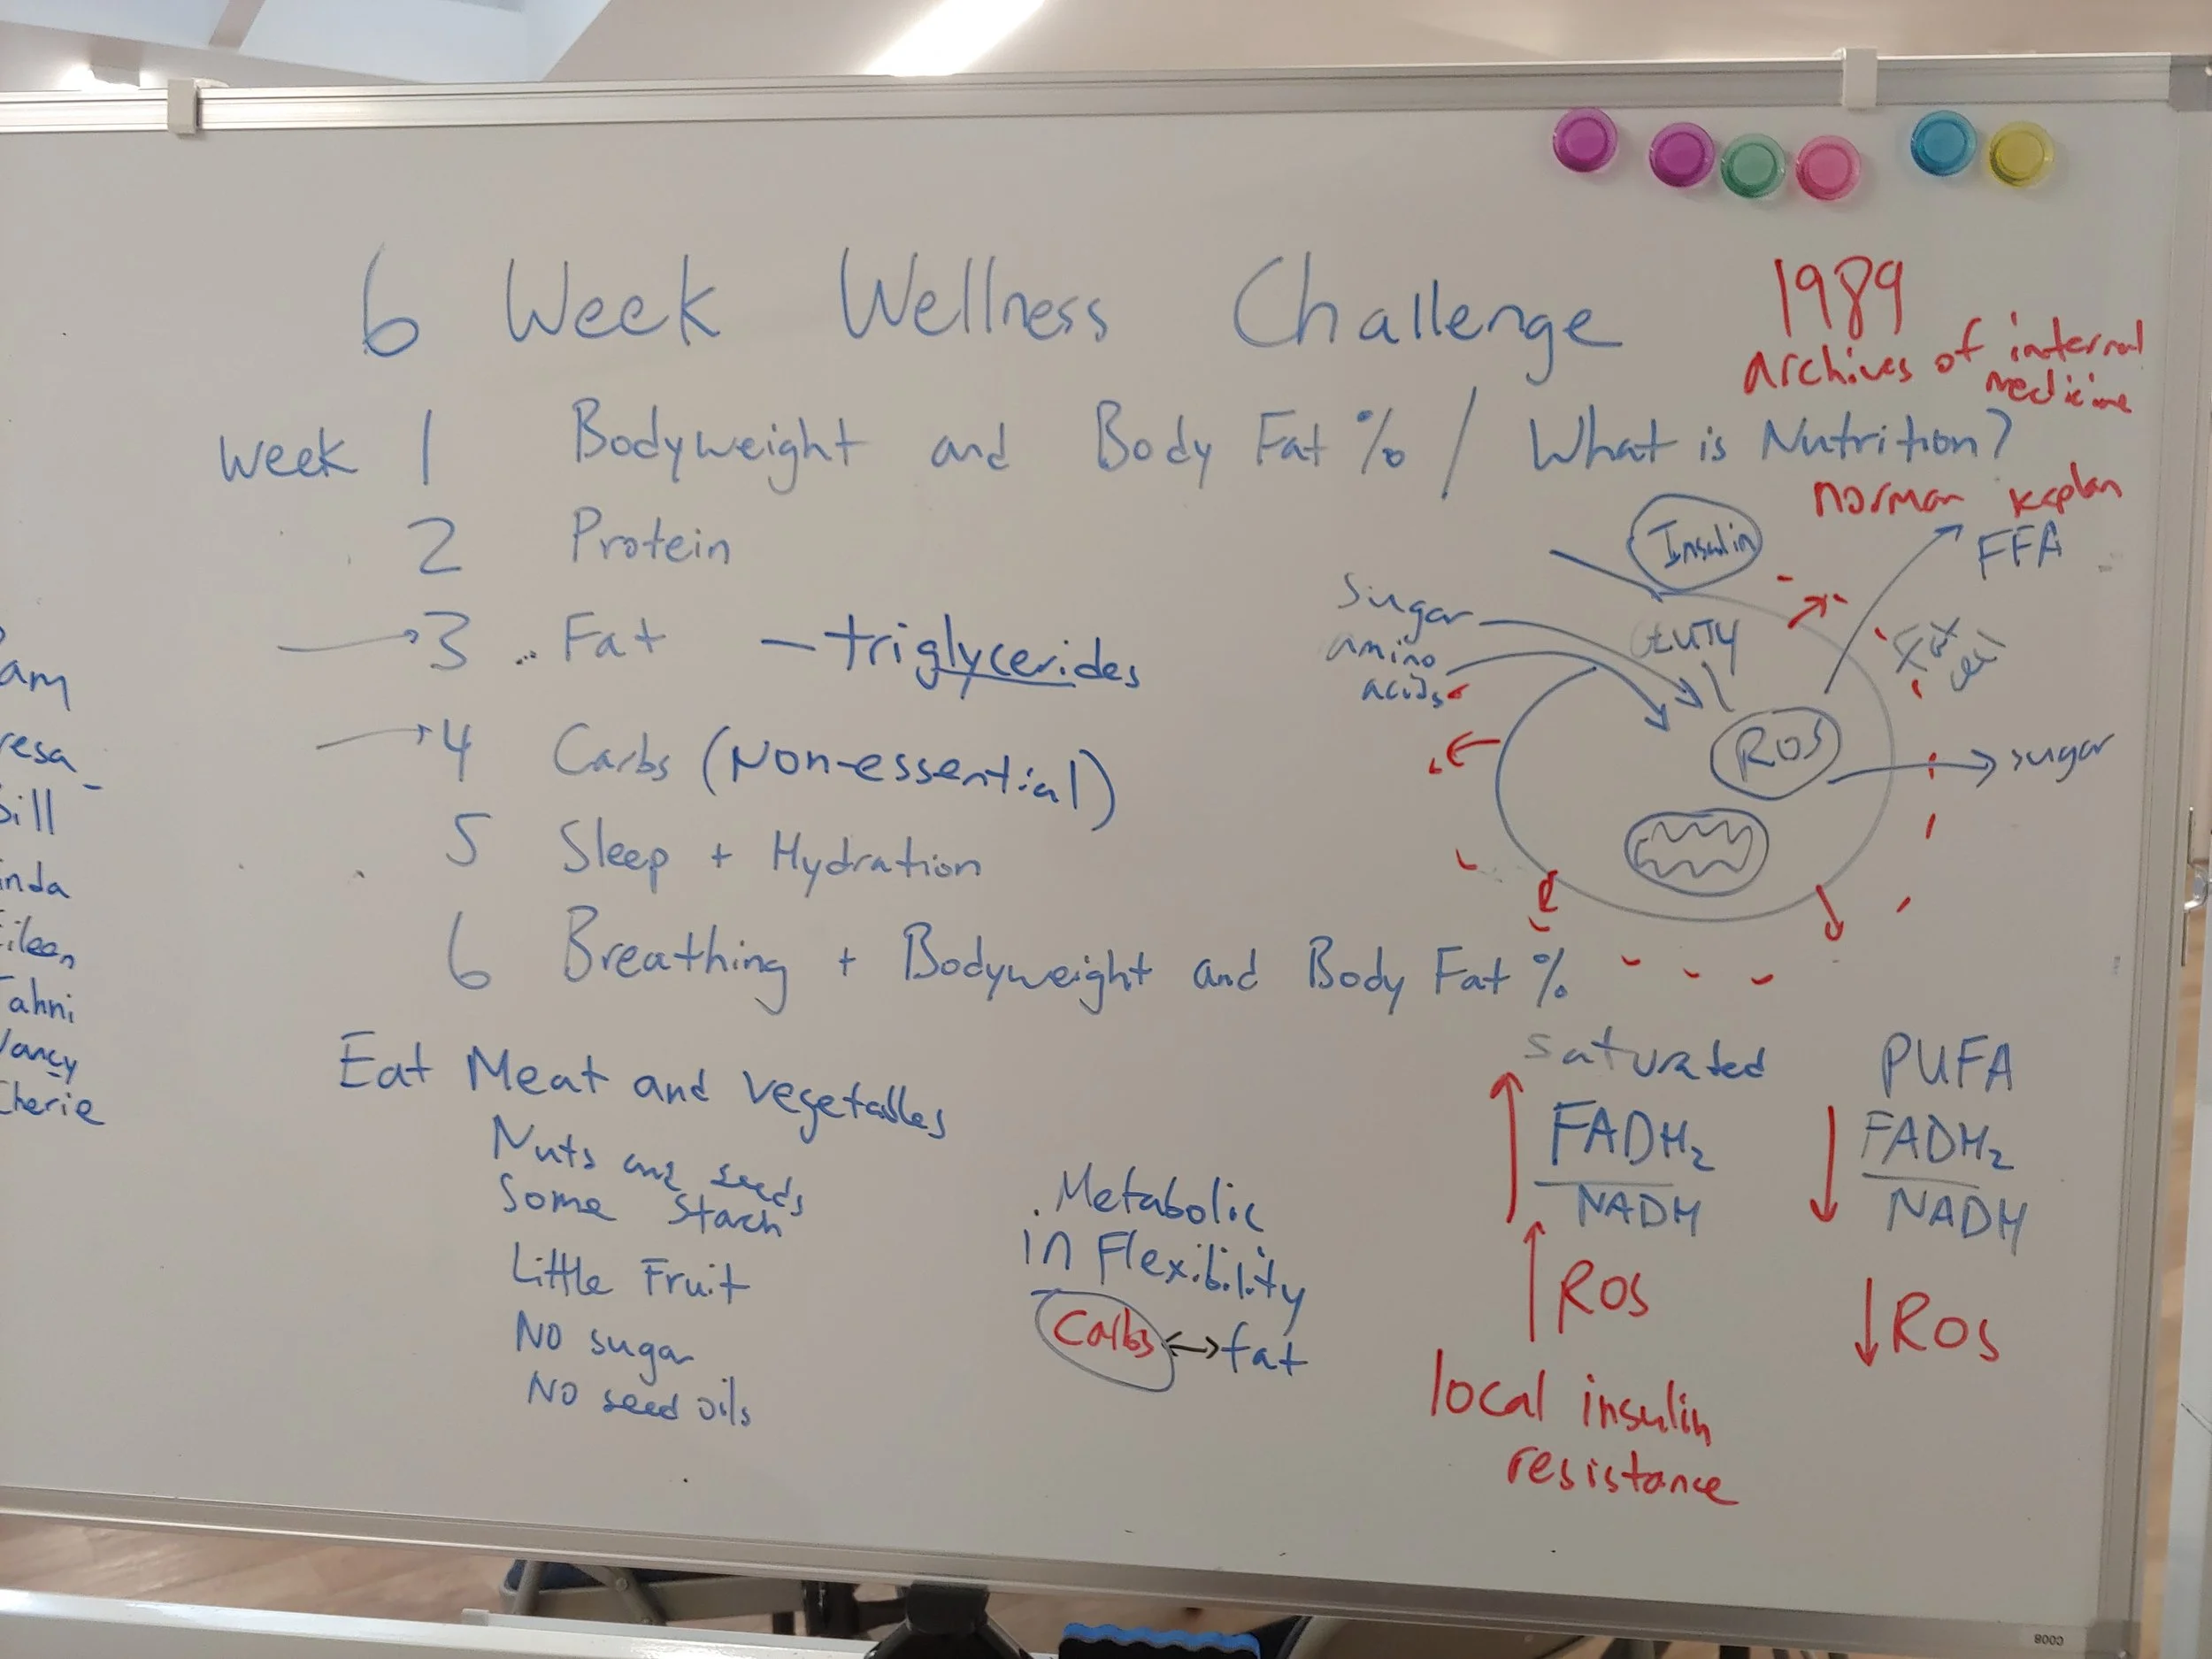 6 Week Wellness Challenge
1989
Archives of internal
medicine
Week 1 Bodyweight and Body Fat % / What is Nutrition?
norman Kaplan
2 Protein
3 Fat - triglycerides
4 Carbs (Non-essential)
5 Sleep + Hydration
6 Breathing + Bodyweight and Body Fat %
Insulin
FFA
Sugar
GLUT4
amino
acids
ROS
sugar
am
resa
ill
inda
ileen
ahni
ancy
herie
Eat Meat and vegetables
Nuts and seeds
Some Starch
Little Fruit
No sugar
No seed oils
Metabolic
in Flexibility
Carbs ↔ fat
saturated
↑ FADH₂
NADH
↑ ROS
local insulin
resistance
PUFA
↓ FADH₂
NADH
↓ ROS
C008